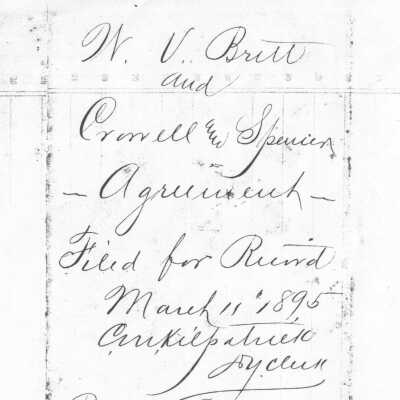 W. V. Britt
and
Crowell and Spencer
— Agreement —
Filed for Record
March 11" 1895
C.M. Kilpatrick
Dy Clerk